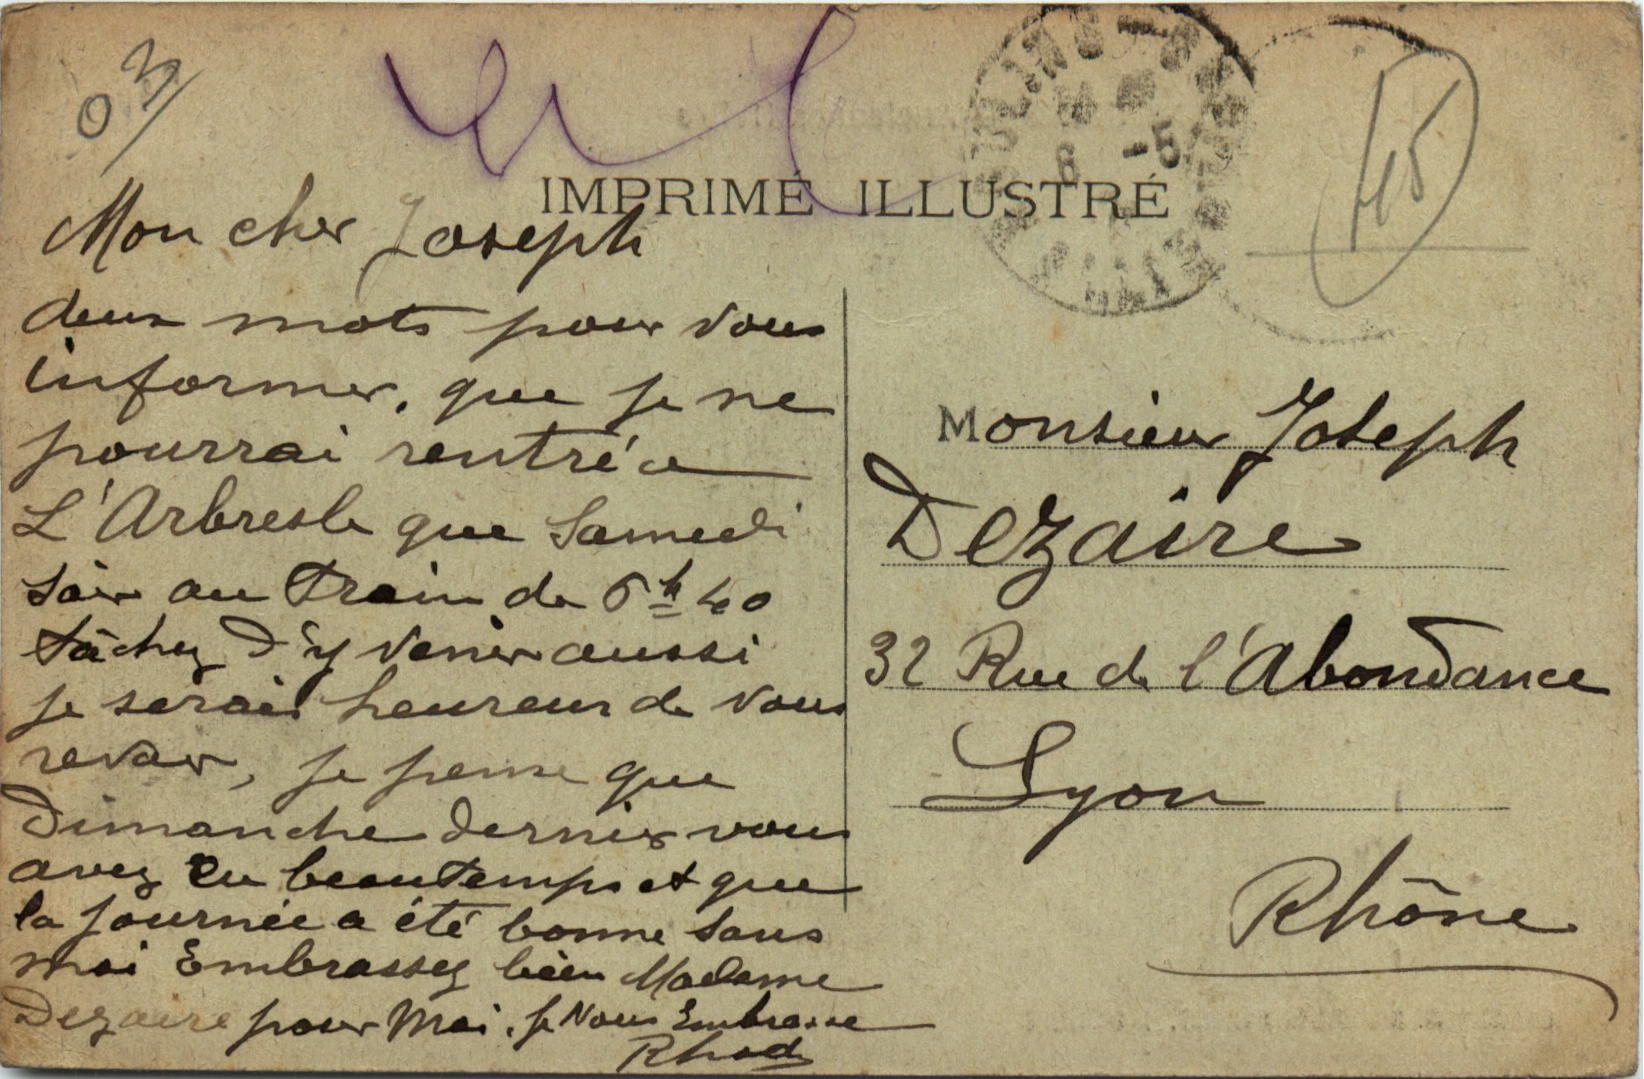 03
IMPRIMÉ ILLUSTRÉ
MOULINS-S
6 -5
45
Mon cher Joseph
deux mots pour vous
informer, que je ne
pourrai rentré a
L'Arbresle que Samedi
soir au train de 6h 40
tâchez d'y venir aussi
je serais heureux de vous
revoir, je pense que
Dimanche dernier vous
avez eu beau temps et que
la journée a été bonne sans
moi Embrassez bien Madame
Dezaire pour Moi. Je Vous Embrasse
Monsieur Joseph
Dezaire
32 Rue de l'Abondance
Lyon
Rhône